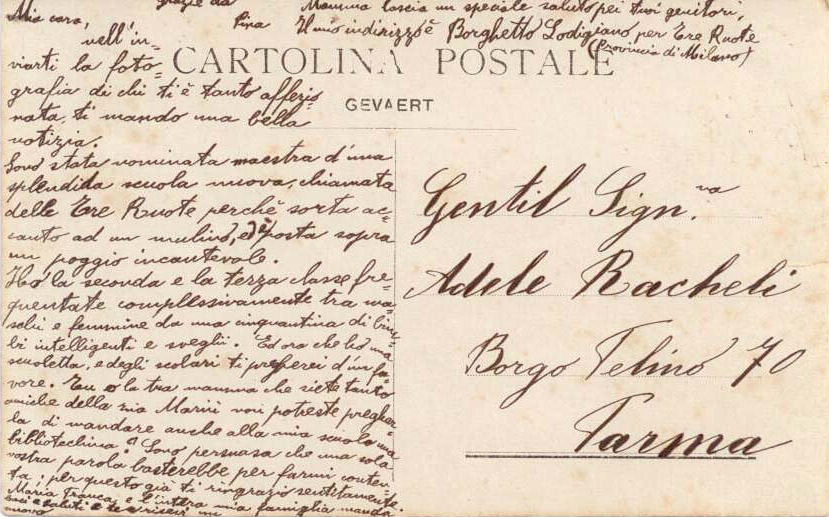 grazie da
Mamma lascia un speciale saluto pei tuoi genitori,
Pina Il mio indirizzo è Borghetto Lodigiano per Tre Ruote
(Provincia di Milano)
CARTOLINA POSTALE
GEVAERT
Mia cara,
nell'in-
viarti la foto-
grafia di chi ti è tanto affezio-
nata, ti mando una bella
notizia.
Sono stata nominata maestra d'una
splendida scuola nuova, chiamata
delle Tre Ruote perchè sorta ac-
canto ad un mulino, ed è posta sopra
un poggio incantevole.
Ho la seconda e la terza classe fre-
quentate complessivamente tra ma-
schi e femmine da una cinquantina di bim-
bi intelligenti e svegli. Ed ora che ho una
scuoletta, e degli scolari ti pregherei d'un fa-
vore. Tu e la tua mamma che siete tanto
amiche della zia Marini non potreste pregar-
la di mandare anche alla mia scuola una
bibliotechina? Sono persuasa che una sola
vostra parola basterebbe per farmi conten-
ta; per questo già ti ringrazio sentitamente.
Maria Franca, e l'intera mia famiglia manda
baci e saluti a te e ricevi un
nuovo
Gentil Sign.na
Adele Racheli
Borgo Felino 70
Parma